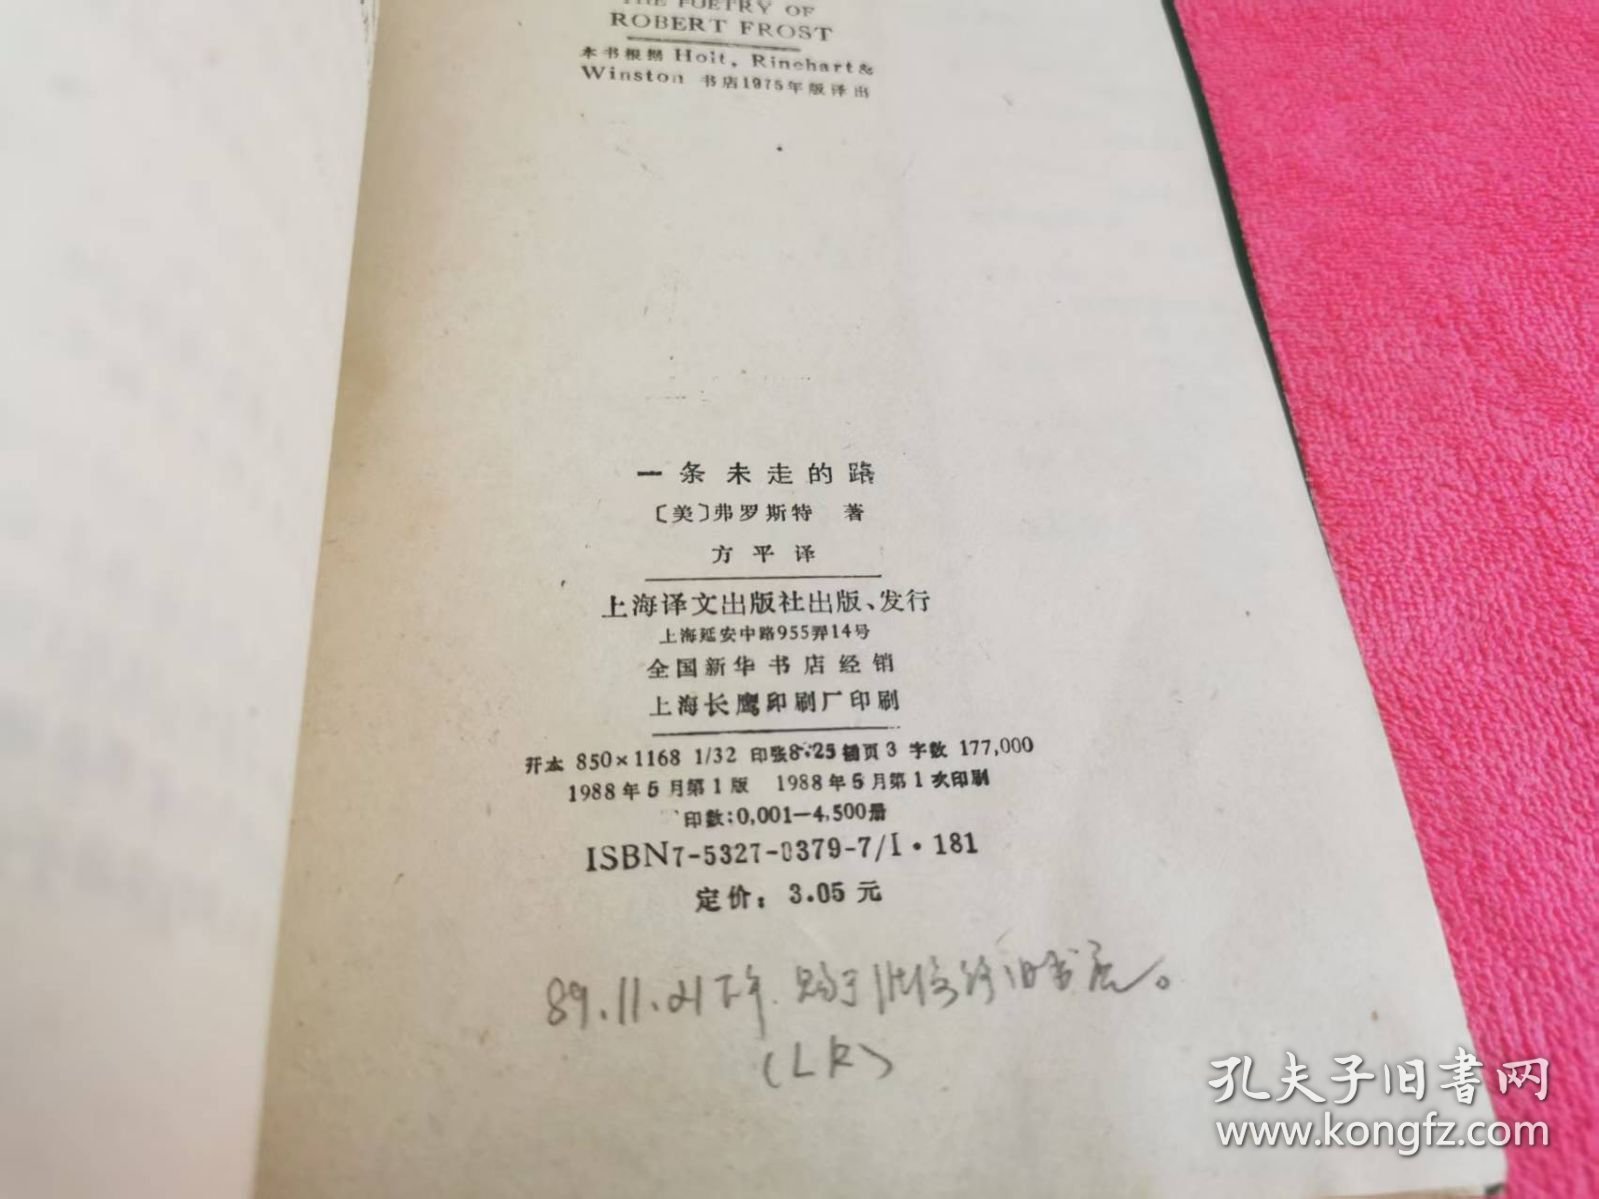 THE POETRY OF
ROBERT FROST
本书根据 Holt, Rinehart &
Winston 书店1975年版译出
一条未走的路
〔美〕弗罗斯特 著
方平译
上海译文出版社出版、发行
上海延安中路955弄14号
全国新华书店经销
上海长鹰印刷厂印刷
开本 850×1168 1/32 印张8.25 插页3 字数 177,000
1988年5月第1版 1988年5月第1次印刷
印数:0,001—4,500册
ISBN7-5327-0379-7/I·181
定价: 3.05元
89.11.21下午. 购于 旧书店。
(LK)
孔夫子旧書网
www.kongfz.com